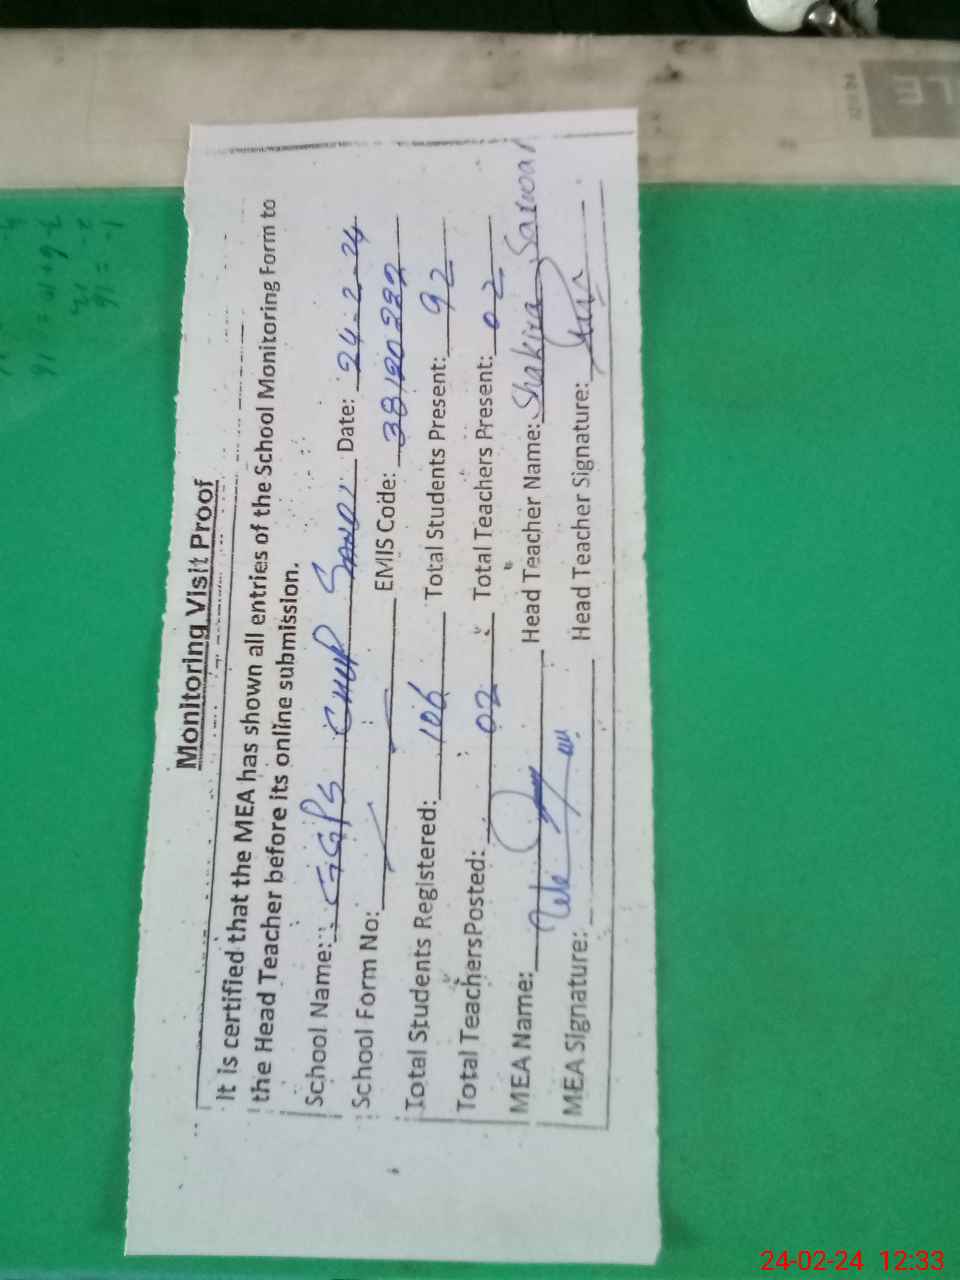 Monitoring Visit Proof
It is certified that the MEA has shown all entries of the School Monitoring Form to
the Head Teacher before its online submission.
School Name: GGPS CHUP SANDI Date: 24-2-24
School Form No: EMIS Code: 38120222
Total Students Registered: 106 Total Students Present: 92
Total TeachersPosted: 02 Total Teachers Present: 02
MEA Name: Head Teacher Name: Shakira Sarwar
MEA Signature: Head Teacher Signature:
24-02-24 12:33